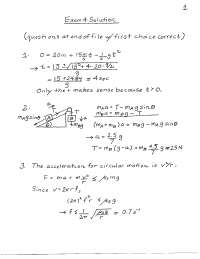 1
Exam 4 Solution
(questions at end of file w/ first choice correct)
1. 0 = 20m + 15 m/s t - 1/2 g t²
→ t = (15 ± √(15² + 4·20·g/2))/g
= 4 sec
Only the + makes sense because t > 0.
2.
m_A a = T - m_A g sinθ
m_B a = m_B g - T
(m_A + m_B) a = m_B g - m_A g sinθ
→ a = g
T = m_B (g - a) = m_B g = 25N
3. The acceleration for circular motion is v²/r.
F = ma = m v²/r ≤ μ_s mg
Since v = 2πrf,
(2π)² f² r ≤ μ_s g
→ f ≤ 1/2π √(μ_s g / r) = 0.7 s⁻¹